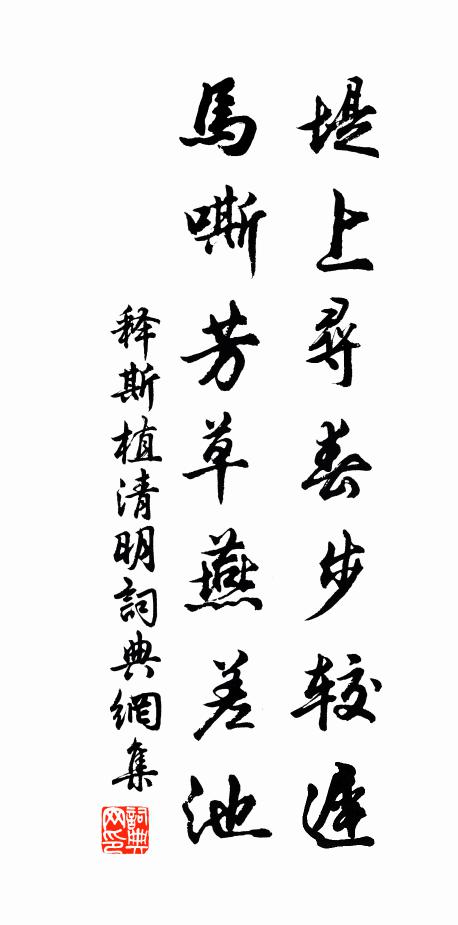 堤上尋春步较遲
馬嘶芳草燕差池
释斯植清明詞典網集
詞典网印